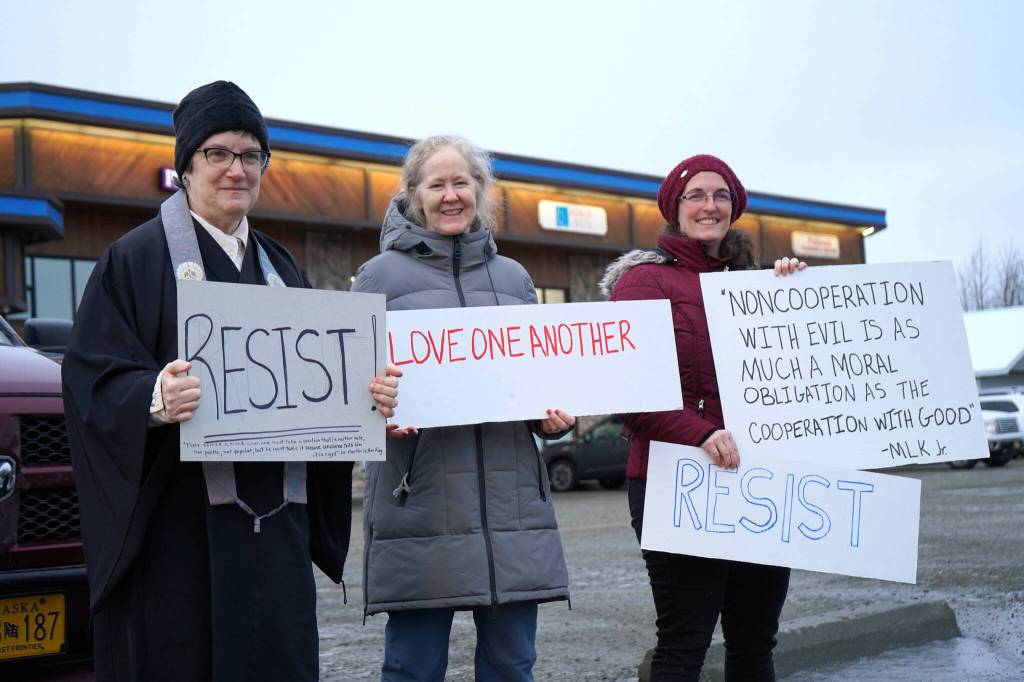 RESIST!
"There comes a time when one must take a position that is neither safe,
nor politic, nor popular, but he must take it because conscience tells him
it is right" Dr Martin Luther King
LOVE ONE ANOTHER
"NONCOOPERATION
WITH EVIL IS AS
MUCH A MORAL
OBLIGATION AS THE
COOPERATION WITH GOOD"
-MLK Jr.
RESIST
ASKA
187
ST FRONTIER